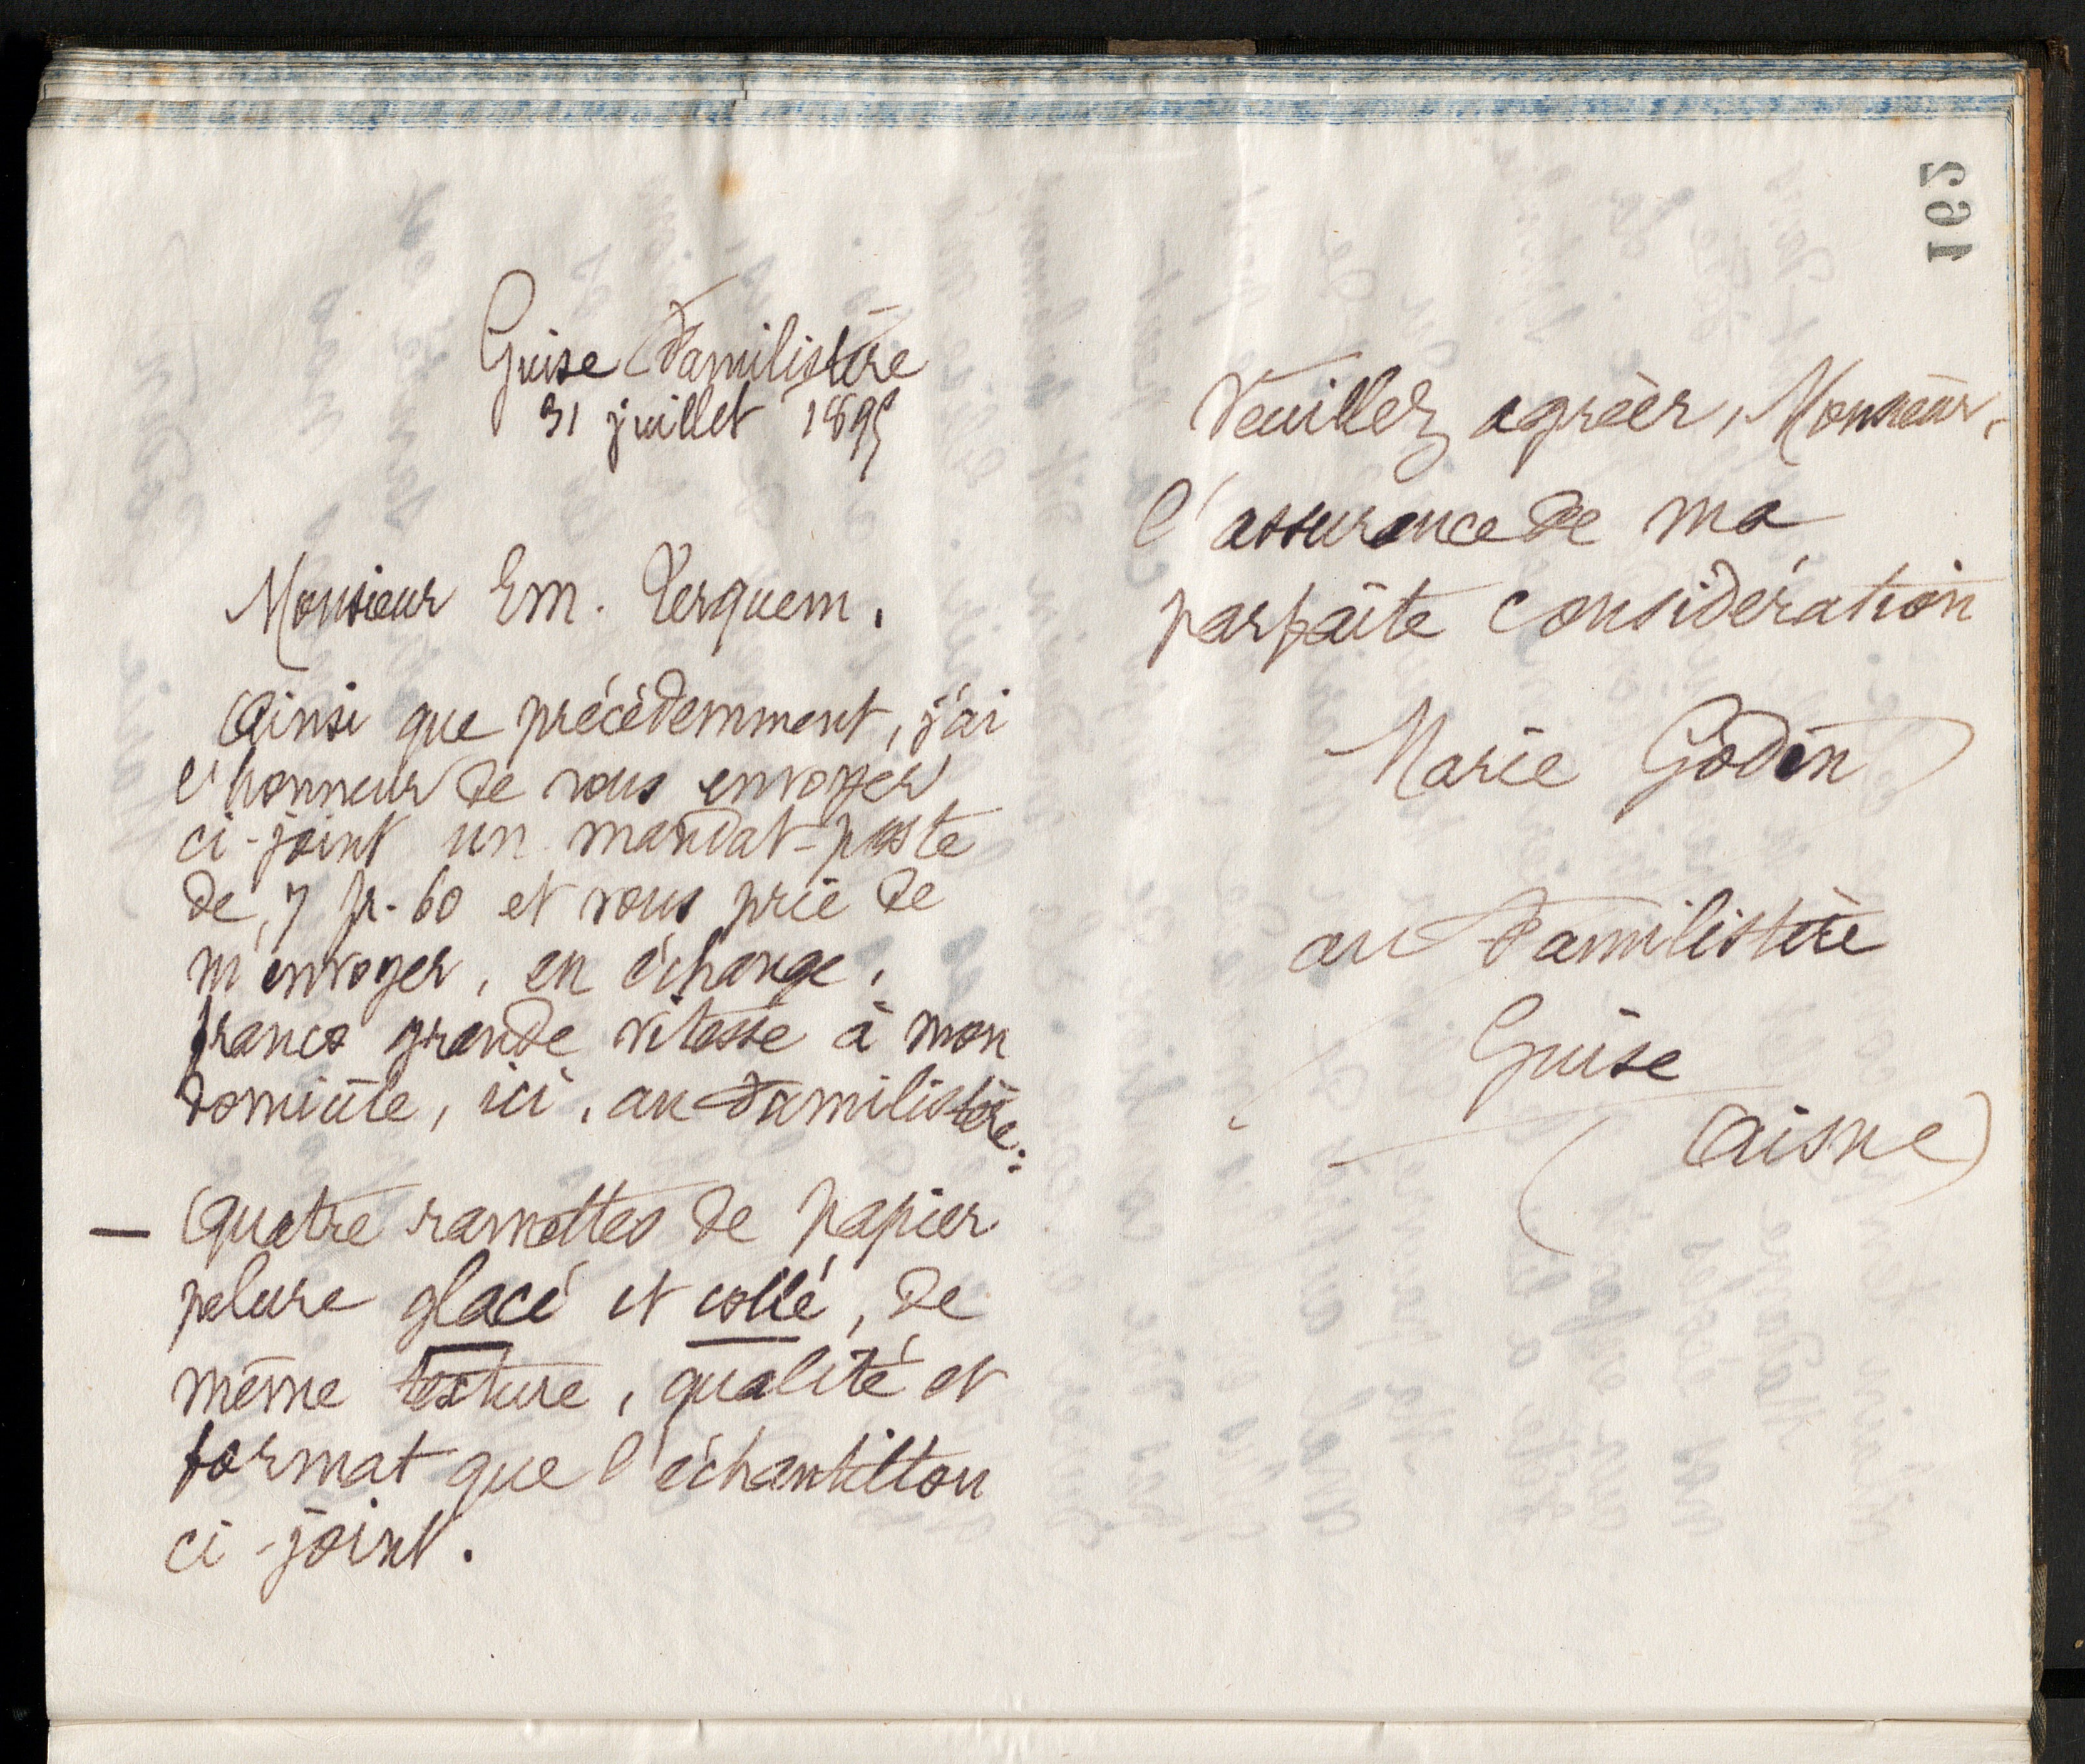 162
Guise Familistère
31 juillet 1895
Monsieur Em. Terquem.
Ainsi que précédemment, j'ai
l'honneur de vous envoyer
ci-joint un mandat-poste
de 7 fr. 60 et vous prie de
m'envoyer, en échange,
franco grande vitesse à mon
domicile, ici, au Familistère:
— Quatre ramettes de papier
pelure glacé et collé, de
même texture, qualité et
format que l'échantillon
ci-joint.
Veuillez agréer, Monsieur,
l'assurance de ma
parfaite considération
Marie Godin
au Familistère
Guise
(Aisne)